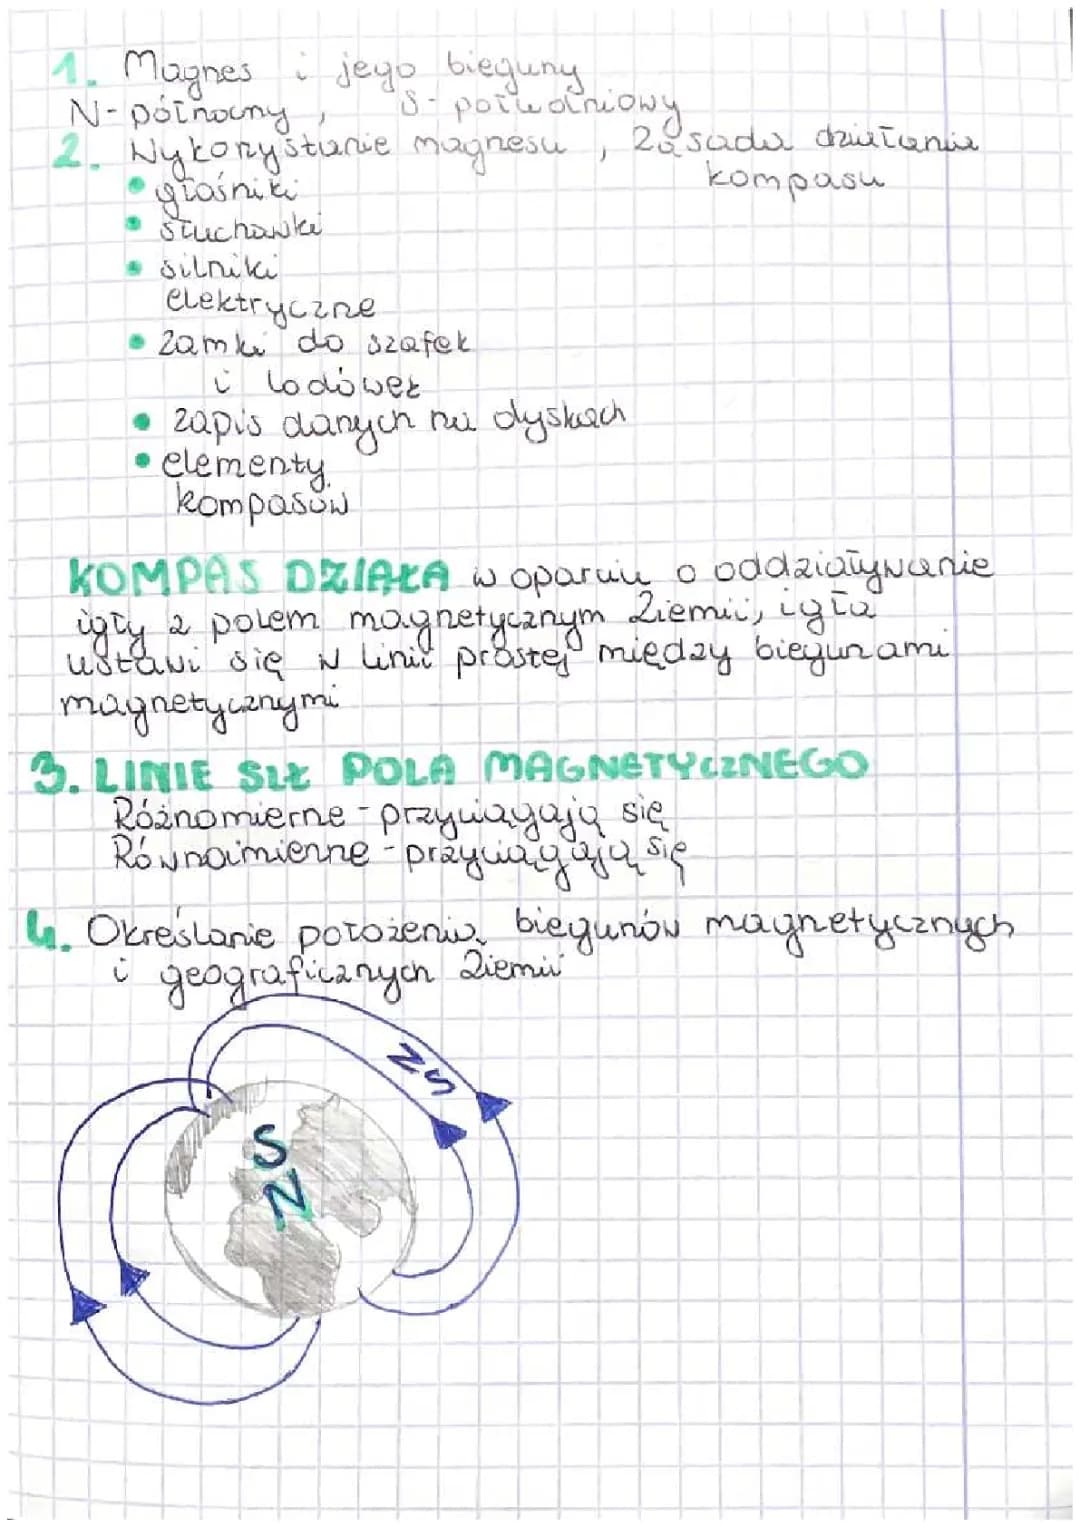 1. Magnes i jego bieguny
N - północny, S - południowy
2. Wykorzystanie magnesu, zasada działania
kompasu
• głośniki
• słuchawki
• silniki
elektryczne
• zamki do szafek
i lodówek
• zapis danych na dyskach
• elementy
kompasów
KOMPAS DZIAŁA w oparciu o oddziaływanie
igły z polem magnetycznym Ziemii, igła
ustawi się w linii prostej między biegunami
magnetycznymi
3. LINIE SIŁ POLA MAGNETYCZNEGO
Różnomierne - przyciągają się
Równoimienne - przyciągają się
4. Określanie położenia biegunów magnetycznych
i geograficznych Ziemii
N S
S
N